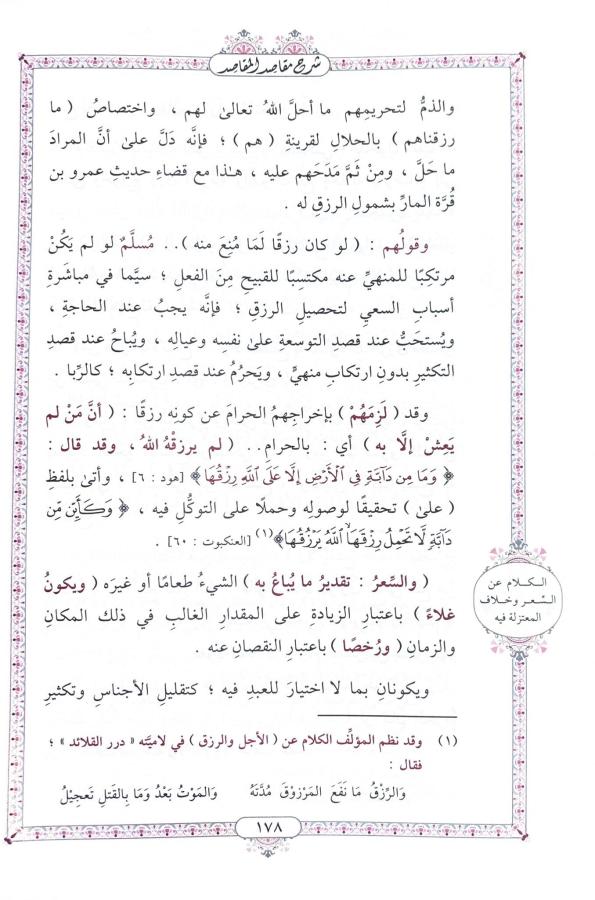 شرح مقاصد المقاصد
والذمُّ لتحريمِهم ما أحلَّ اللهُ تعالىٰ لهم ، واختصاصُ ( ما
رزقناهم ) بالحلالِ لقرينةِ ( هم ) ؛ فإنَّه دَلَّ علىٰ أنَّ المرادَ
ما حَلَّ ، ومِنْ ثَمَّ مدَحَهم عليه ، هـٰذا مع قضاءِ حديثِ عمرو بن
قُرَّة المارِّ بشمولِ الرزقِ له .
وقولُهم : ( لو كان رزقًا لَمَا مُنِعَ منه ) . . مُسلَّمٌ لو لم يَكُنْ
مرتكِبًا للمنهيِّ عنه مكتسِبًا للقبيحِ مِنَ الفعلِ ؛ سيَّما في مباشَرةِ
أسبابِ السعيِ لتحصيلِ الرزقِ ؛ فإنَّه يجبُ عند الحاجةِ ،
ويُستحَبُّ عند قصدِ التوسعةِ علىٰ نفسِه وعيالِه ، ويُباحُ عند قصدِ
التكثيرِ بدونِ ارتكابِ منهيٍّ ، ويَحرُمُ عند قصدِ ارتكابِه ؛ كالرِّبا .
وقد ( لَزِمَهُمْ ) بإخراجِهمُ الحرامَ عن كونِه رزقًا : ( أنَّ مَنْ لم
يَعِشْ إلَّا به ) أي : بالحرامِ . . ( لم يرزقْهُ اللهُ ، وقد قال :
﴿ وَمَا مِن دَآبَّةٍ فِي ٱلْأَرْضِ إِلَّا عَلَى ٱللَّهِ رِزْقُهَا ﴾ [هود : ٦] ، وأتىٰ بلفظِ
( علىٰ ) تحقيقًا لوصولِه وحملًا على التوكُّلِ فيه ، ﴿ وَكَأَيِّن مِّن
دَآبَّةٍ لَّا تَحْمِلُ رِزْقَهَا ٱللَّهُ يَرْزُقُهَا ﴾(١) [العنكبوت : ٦٠] .
( والسِّعرُ : تقديرُ ما يُباعُ به ) الشيءُ طعامًا أو غيرَه ( ويكونُ
غلاءً ) باعتبارِ الزيادةِ على المقدارِ الغالبِ في ذلك المكانِ
والزمانِ ( ورُخصًا ) باعتبارِ النقصانِ عنه .
ويكونانِ بما لا اختيارَ للعبدِ فيه ؛ كتقليلِ الأجناسِ وتكثيرِ
الكلام عن
السِّعر وخلاف
المعتزلة فيه
(١) وقد نظم المؤلِّف الكلام عن ( الأجل والرزق ) في لاميَّته « درر القلائد » ؛
فقال :
وَالرِّزْقُ مَا نَفَعَ المَرْزُوقَ مُدَّتَهُ وَالمَوْتُ بَعْدُ وَمَا بِالقَتلِ تَعجِيْلُ
١٧٨